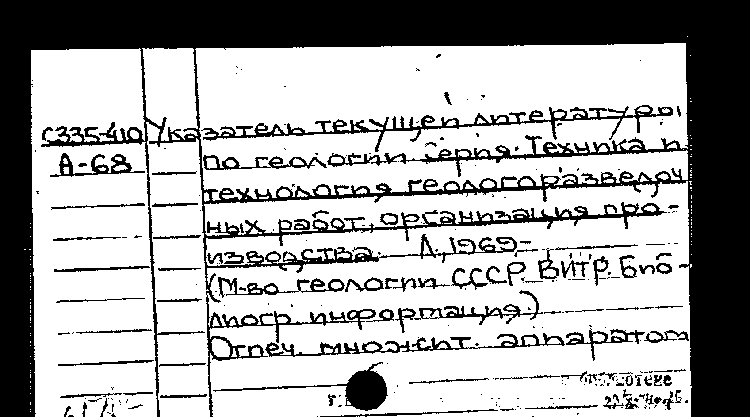 С335-410 Указатель текущей литературы
А-68 по геологии серия: Техника и
технология геологоразведоч
ных работ, организация про-
изводства. Л., 1969,-
(М-во геологии СССР. ВИТР. Биб-
лиогр. информация.)
Отпеч. множит. аппаратом